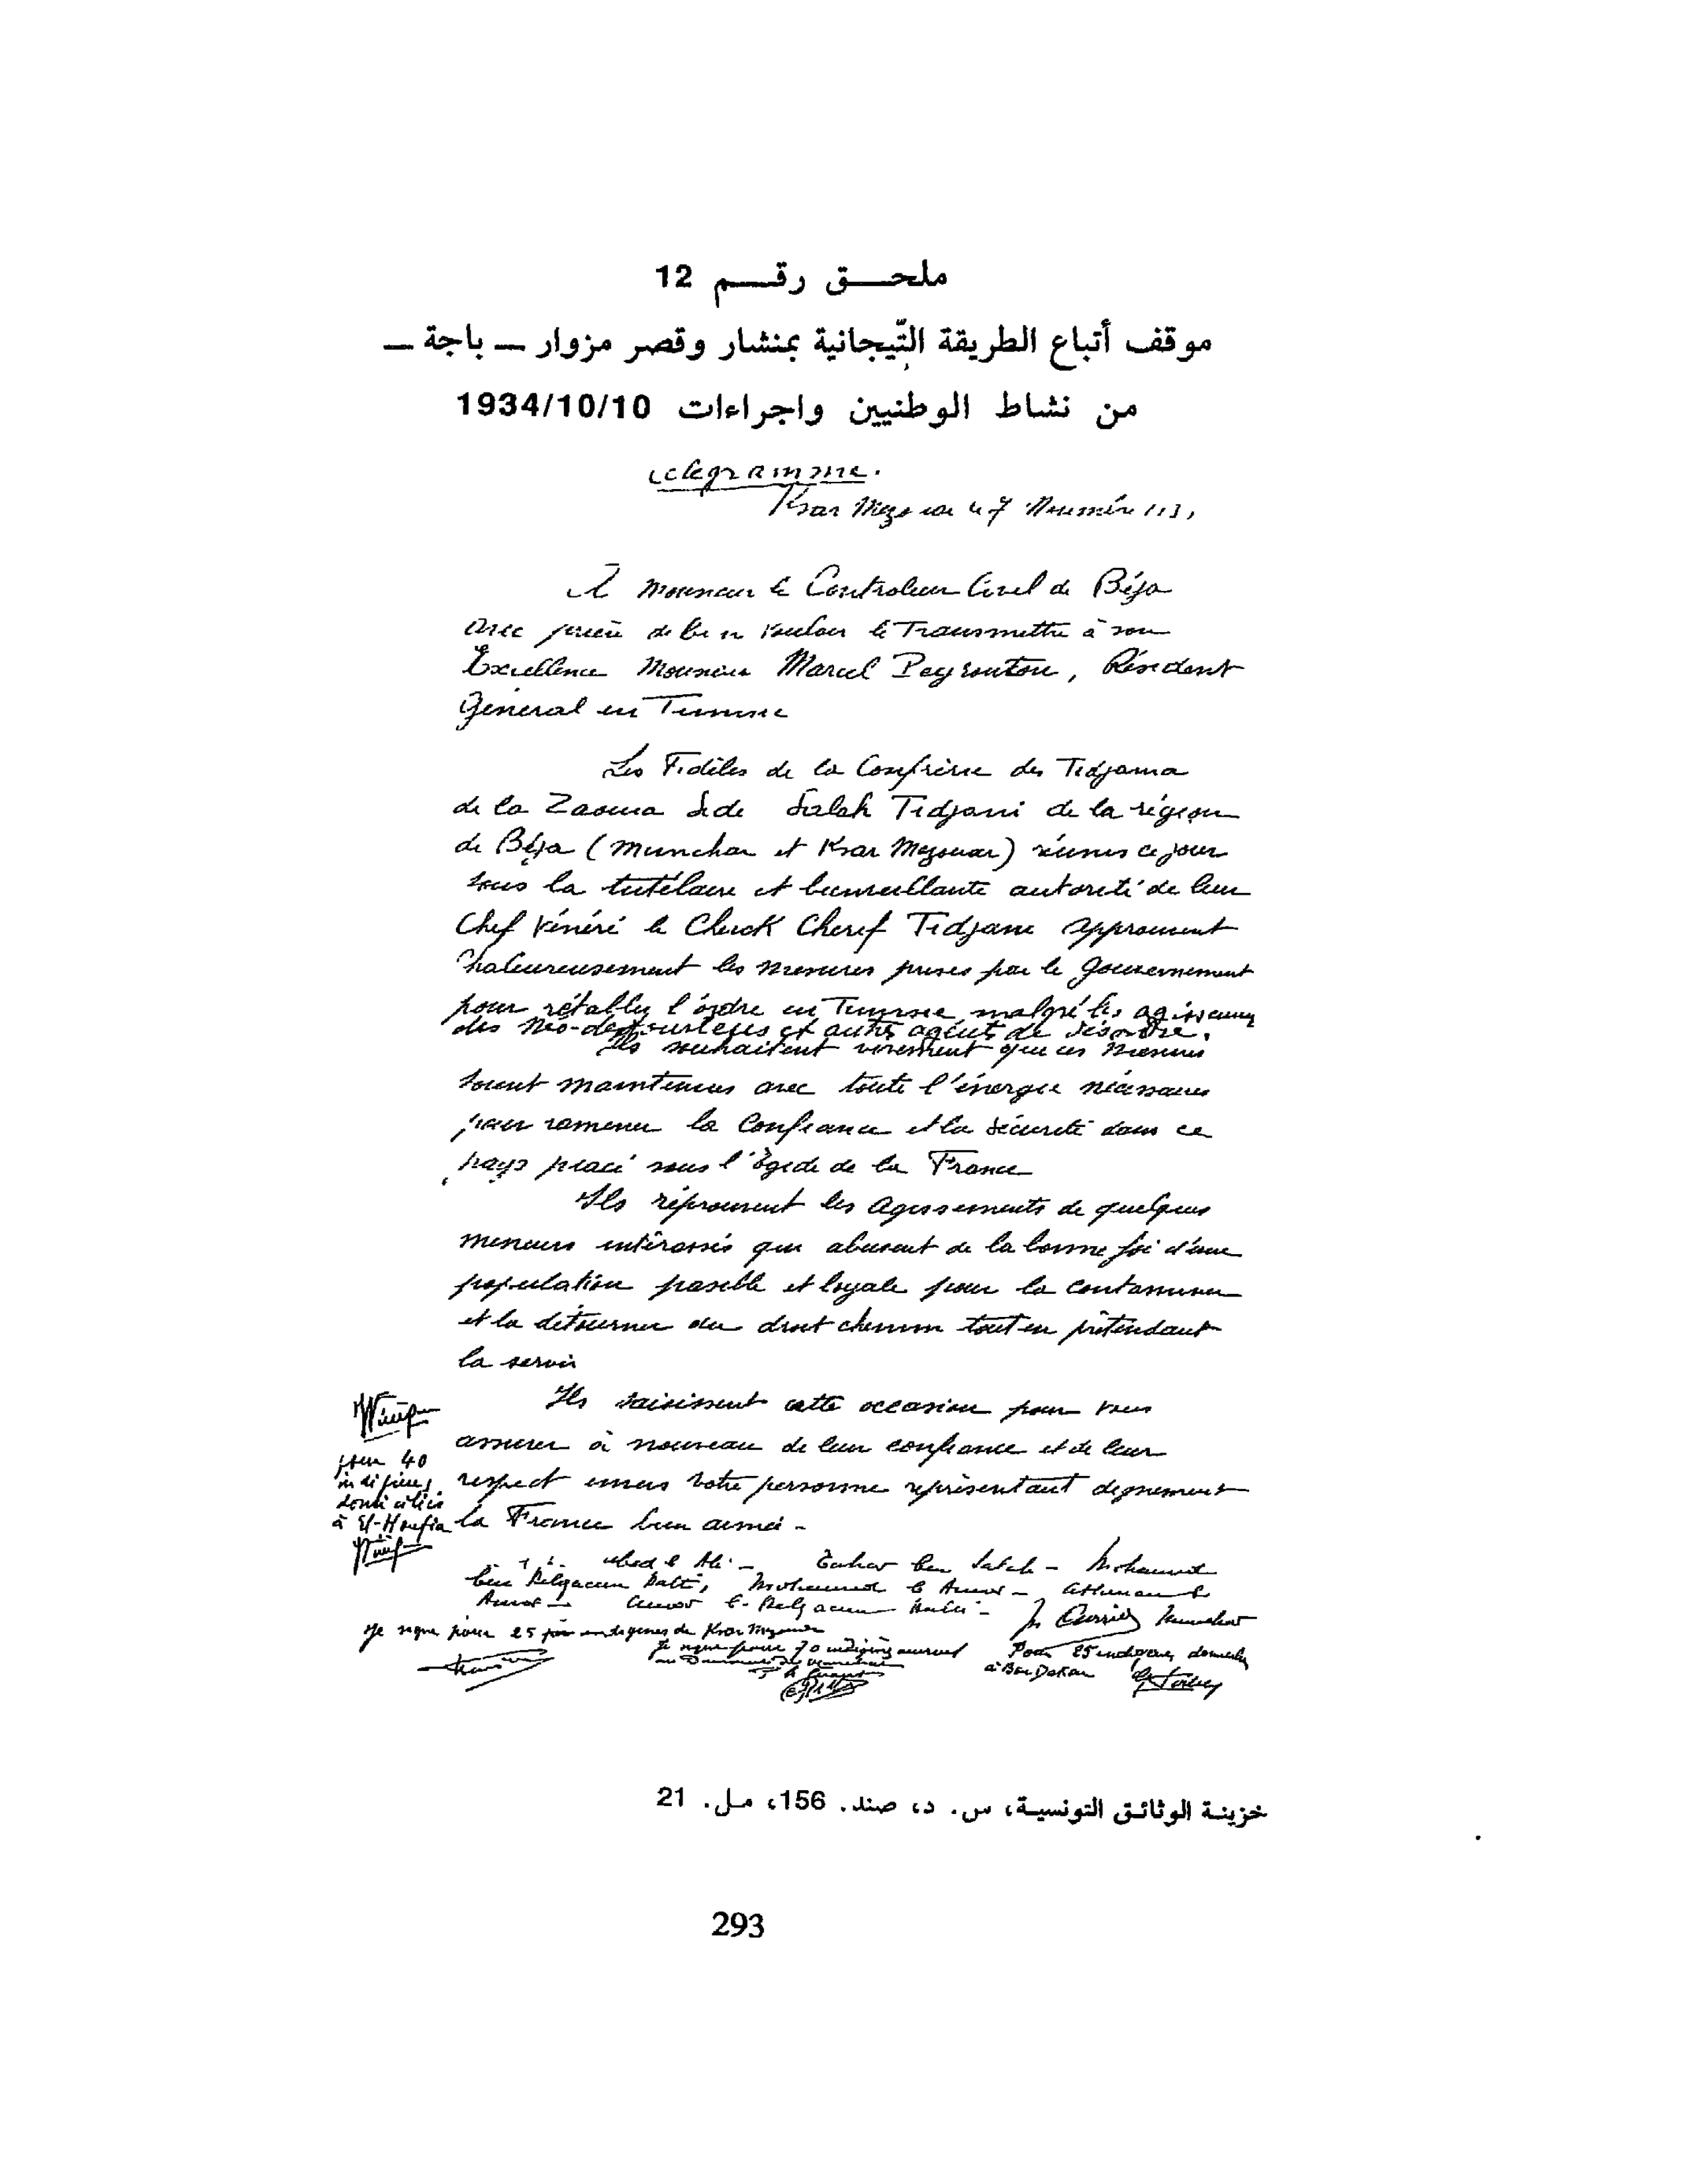 ملحق رقم 12
موقف أتباع الطريقة التّيجانية بمنشار وقصر مزوار – باجة –
من نشاط الوطنيين واجراءات 1934/10/10
telegramme.
Ksar Mezouar le 7 Novembre
A Monsieur le Controleur Civil de Béja
avec prière de bien vouloir le Transmettre à son
Excellence Monsieur Marcel Peyrouton, Résident
Général en Tunisie
Les Fidèles de la Confrérie des Tidjania
de la Zaouia Side Salah Tidjani de la région
de Béja (Munchar et Ksar Mezouar) réunis ce jour
sous la tutélaire et bienveillante autorité de leur
Chef Vénéré le Cheick Cherif Tidjani approuvent
chaleureusement les mesures prises par le Gouvernement
pour rétablir l'ordre en Tunisie malgré les agissements
des néo-destouriens et autres agents de désordre.
Ils souhaitent vivement que ces mesures
soient maintenues avec toute l'énergie nécessaire
pour ramener la Confiance et la sécurité dans ce
pays placé sous l'Egide de la France
Ils réprouvent les agissements de quelques
meneurs intéressés qui abusent de la bonne foi d'une
population paisible et loyale pour la contaminer
et la détourner du droit chemin tout en prétendant
la servir
Ils saisissent cette occasion pour vous
assurer à nouveau de leur confiance et de leur
respect envers votre personne représentant dignement
la France bien aimée -
pour 40
indigènes
domiciliés
à El-Houfia
Ali - Tahar ben Salah - Mohamed
ben Belgacem Mohamed b Amor -
Amor - Amor b. Belgacem
Je signe pour 25 indigènes de Ksar Mezouar
Je signe pour 70 indigènes
Pour 25 indigènes domiciliés
à Bou
خزينة الوثائق التونسية، س. د، صند. 156، مل. 21
293